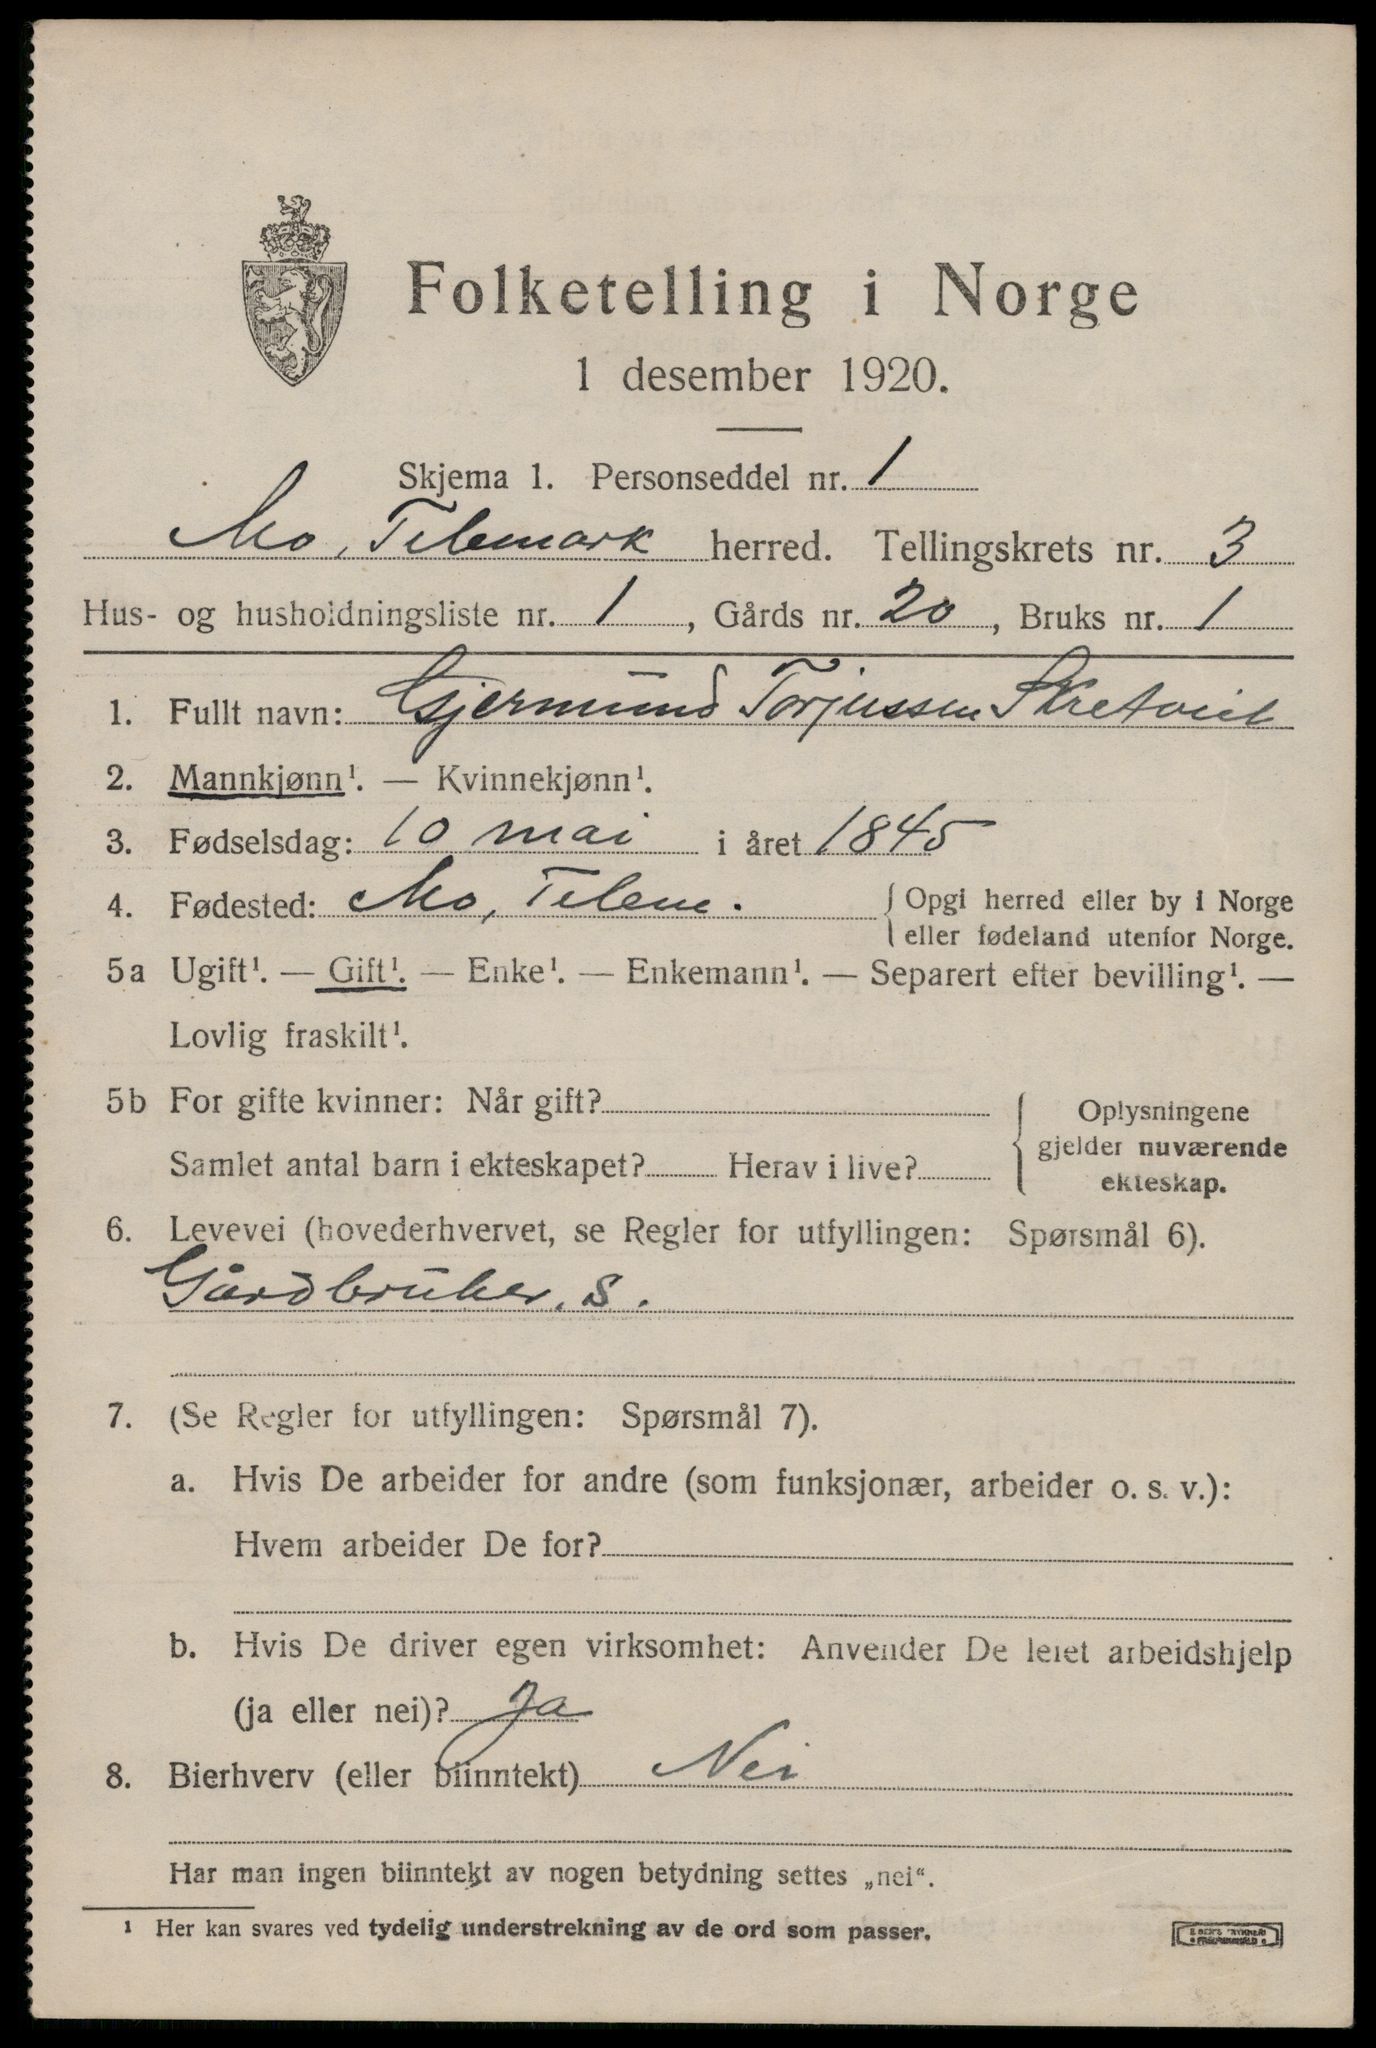 Folketelling i Norge
1 desember 1920.
Skjema 1. Personseddel nr. 1
Mo, Telemark herred. Tellingskrets nr. 3
Hus- og husholdningsliste nr. 1, Gårds nr. 20, Bruks nr. 1
1. Fullt navn: Gjermund Torjussen Skretveit
2. Mannkjønn¹. — Kvinnekjønn¹.
3. Fødselsdag: 10 mai i året 1845
4. Fødested: Mo, Telem. Opgi herred eller by i Norge
eller fødeland utenfor Norge.
5a Ugift¹. — Gift¹. — Enke¹. — Enkemann¹. — Separert efter bevilling¹. —
Lovlig fraskilt¹.
5b For gifte kvinner: Når gift?
Samlet antal barn i ekteskapet? Herav i live?
Oplysningene
gjelder nuværende
ekteskap.
6. Levevei (hovederhvervet, se Regler for utfyllingen: Spørsmål 6).
Gårdbruker. S.
7. (Se Regler for utfyllingen: Spørsmål 7).
a. Hvis De arbeider for andre (som funksjonær, arbeider o. s. v.):
Hvem arbeider De for?
b. Hvis De driver egen virksomhet: Anvender De leiet arbeidshjelp
(ja eller nei)? Ja
8. Bierhverv (eller biinntekt) Nei
Har man ingen biinntekt av nogen betydning settes „nei“.
¹ Her kan svares ved tydelig understrekning av de ord som passer.